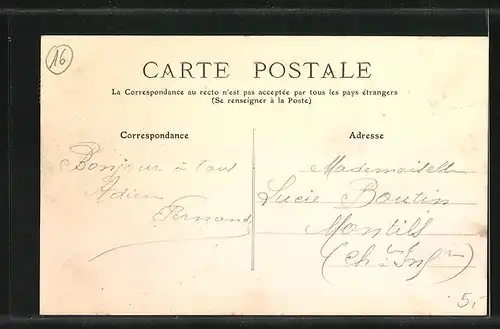 16
CARTE POSTALE
La Correspondance au recto n'est pas acceptée par tous les pays étrangers
(Se renseigner à la Poste)
Correspondance
Bonjour à tout
Adieu
Fernand
Adresse
Mademoiselle
Lucie Boutin
Montils
(Chte Infre)
5,-